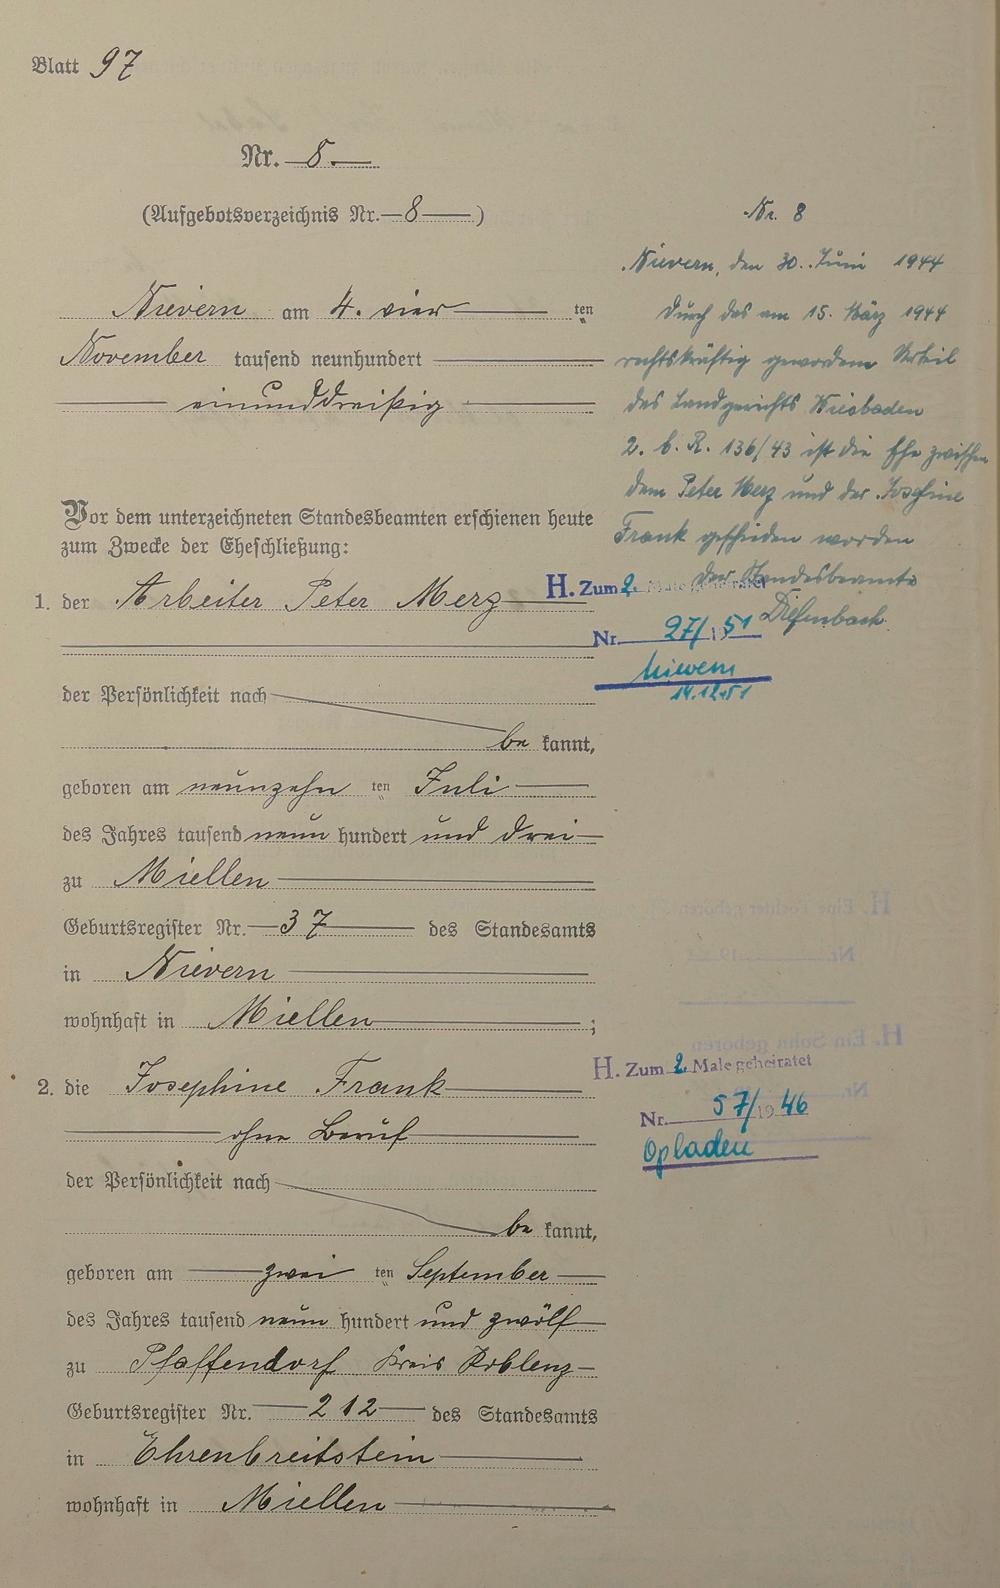 Blatt 97
Nr. 8.
(Aufgebotsverzeichnis Nr. 8)
Nievern am 4. vier ten
November tausend neunhundert
einunddreißig
Vor dem unterzeichneten Standesbeamten erschienen heute
zum Zwecke der Eheschließung:
1. der Arbeiter Peter Merz
der Persönlichkeit nach
be kannt,
geboren am neunzehn ten Juli
des Jahres tausend neun hundert und drei
zu Miellen
Geburtsregister Nr. 37 des Standesamts
in Nievern
wohnhaft in Miellen ;
2. die Josephine Frank
ohne Beruf
der Persönlichkeit nach
be kannt,
geboren am zwei ten September
des Jahres tausend neun hundert und zwölf
zu Pfaffendorf Kreis Koblenz
Geburtsregister Nr. 212 des Standesamts
in Ehrenbreitstein
wohnhaft in Miellen
Nr. 8
Nievern, den 30. Juni 1944
Durch das am 15. März 1944
rechtskräftig gewordene Urteil
des Landgerichts Wiesbaden
2. b. R. 136/43 ist die Ehe zwischen
dem Peter Merz und der Josephine
Frank geschieden worden
Der Standesbeamte
Diefenbach
H. Zum 2. Male geheiratet
Nr. 27/1951
Nievern
14.12.51
H. Zum 2 Male geheiratet
Nr. 57/1946
Opladen